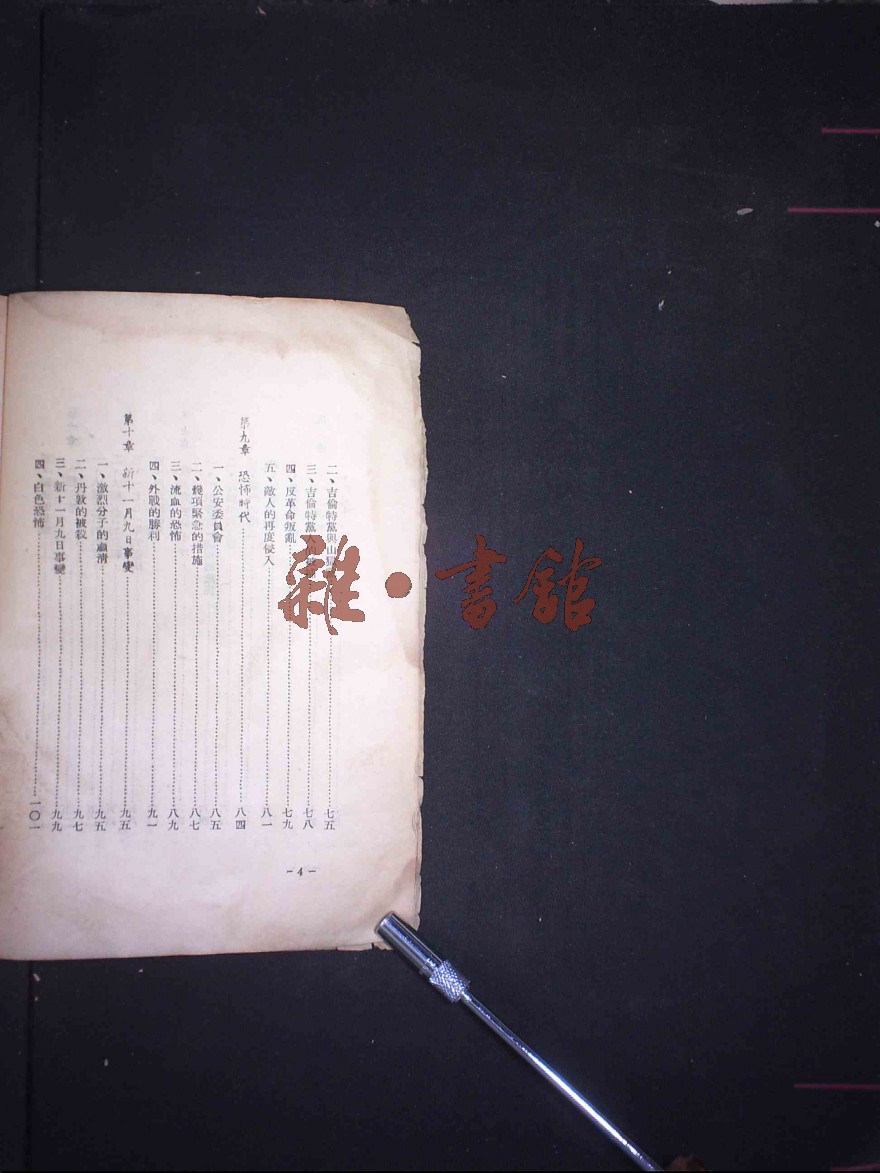 二、吉倫特黨與山……七五
三、吉倫特黨……七八
四、反革命叛亂……七九
五、敵人的再度侵入……八一
第九章　恐怖時代……八四
一、公安委員會……八五
二、幾項緊急的措施……八七
三、流血的恐怖……八九
四、外戰的勝利……九一
第十章　新十一月九日事變……九五
一、激烈分子的肅清……九五
二、丹敦的被殺……九七
三、新十一月九日事變……九九
四、白色恐怖……一〇一
－4－
雜・書館